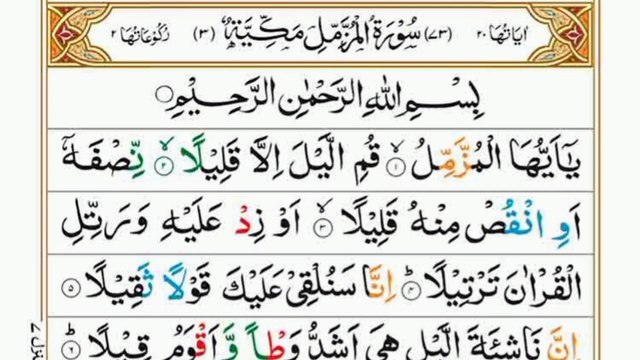 اٰيَاتُهَا ٢٠ (٧٣) سُوْرَةُ الْمُزَّمِّلِ مَكِّيَّةٌ (٣) رُكُوْعَاتُهَا ٢
بِسْمِ اللّٰهِ الرَّحْمٰنِ الرَّحِيْمِ
يٰۤاَيُّهَا الْمُزَّمِّلُ ۙ﴿١﴾ قُمِ الَّيْلَ اِلَّا قَلِيْلًا ۙ﴿٢﴾ نِّصْفَهٗۤ
اَوِ انْقُصْ مِنْهُ قَلِيْلًا ۙ﴿٣﴾ اَوْ زِدْ عَلَيْهِ وَرَتِّلِ
الْقُرْاٰنَ تَرْتِيْلًا ؕ﴿٤﴾ اِنَّا سَنُلْقِيْ عَلَيْكَ قَوْلًا ثَقِيْلًا ﴿٥﴾
اِنَّ نَاشِئَةَ الَّيْلِ هِيَ اَشَدُّ وَطْاً وَّاَقْوَمُ قِيْلًا ؕ﴿٦﴾